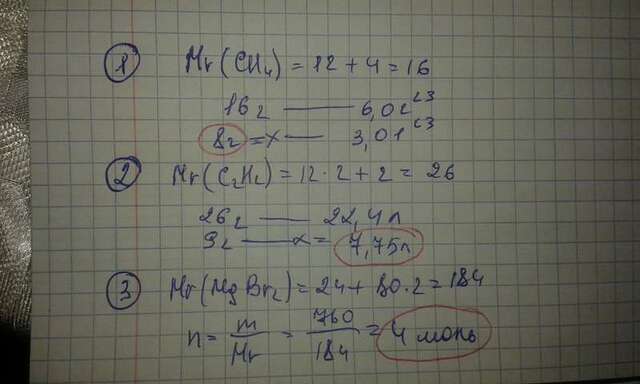 ① Mr(CH₄) = 12 + 4 = 16
16г —— 6,02²³
8г = x — 3,01²³
② Mr(C₂H₂) = 12·2 + 2 = 26
26г —— 22,4л
9г —— x = 7,75л
③ Mr(MgBr₂) = 24 + 80·2 = 184
n = m/Mr = 760/184 = 4 моль